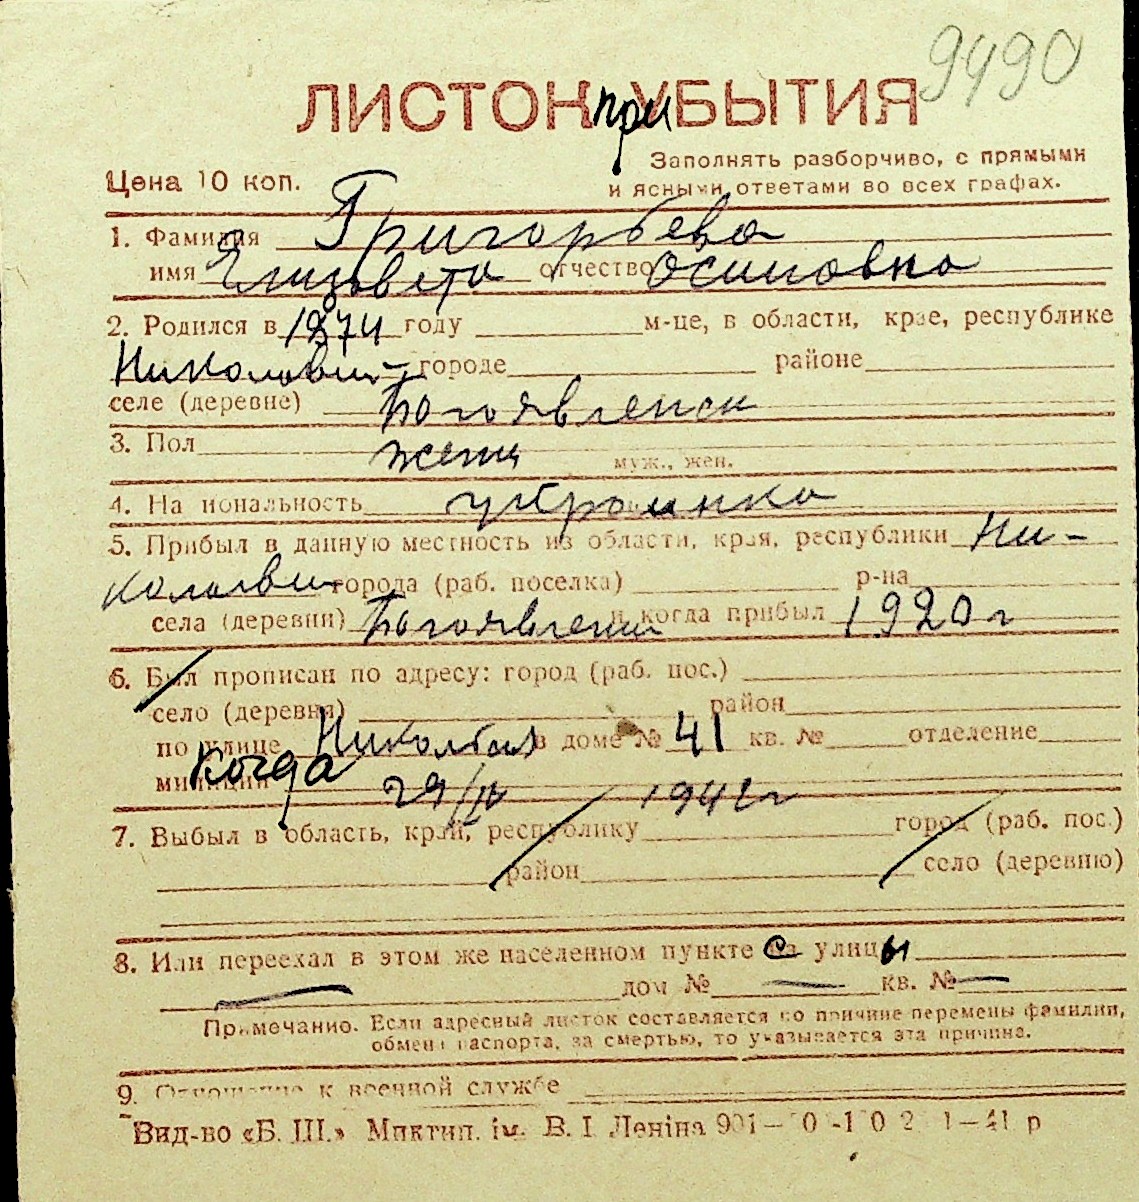 9490
ЛИСТОК при УБЫТИЯ
Заполнять разборчиво, с прямыми
Цена 10 коп. и ясными ответами во всех графах.
1. Фамилия Григорьева
имя Елизавета отчество Осиповна
2. Родился в 1874 году м-це, в области, крае, республике
Николаевск- городе районе
селе (деревне) Богоявленск
3. Пол женщ муж., жен.
4. Национальность украинка
5. Прибыл в данную местность из области, края, республики Ни-
колаевск города (раб. поселка) р-на
села (деревни) Богоявленск и когда прибыл 1920 г
6. Был прописан по адресу: город (раб. пос.)
село (деревня) район
по улице в доме № 41 кв. № отделение
милиции когда 29/IV 1942 г
7. Выбыл в область, край, республику город (раб. пос.)
район село (деревню)
8. Или переехал в этом же населенном пункте с улицы
дом № — кв. № —
Примечание. Если адресный листок составляется по причине перемены фамилии,
обмена паспорта, за смертью, то указывается эта причина.
9. Отношение к военной службе
Вид-во «Б. Ш.» Миктип. ім. В. І Леніна